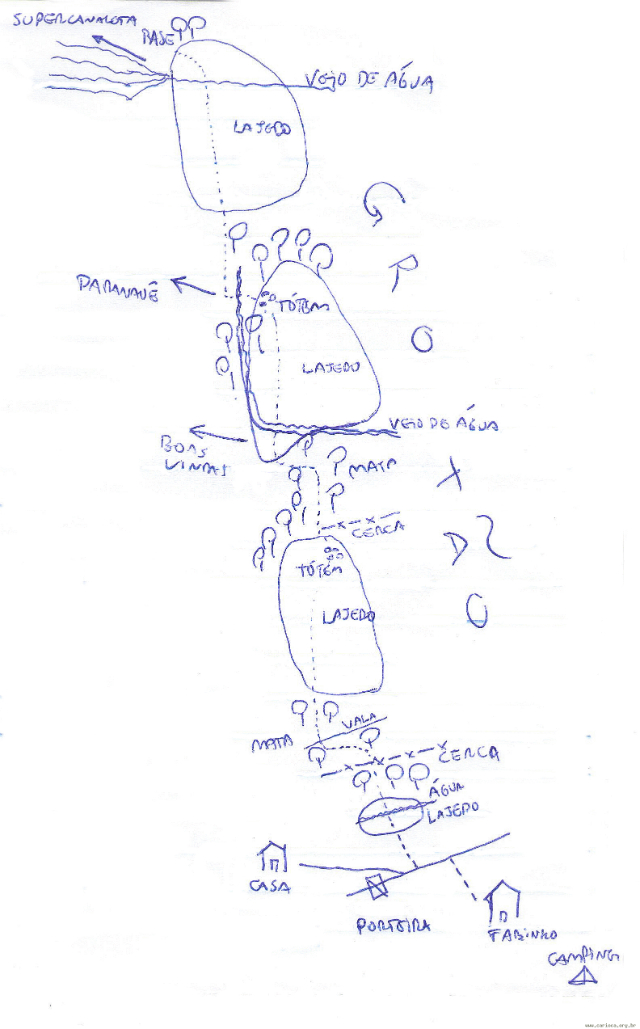 SUPERCANALETA
BASE
VEIO DE ÁGUA
LAJEDO
PARANAUÊ
TÓTEM
LAJEDO
VEIO DE ÁGUA
BOAS
VINDAS
MATA
CERCA
TÓTEM
LAJEDO
VALA
MATA
CERCA
ÁGUA
LAJEDO
CASA
PORTEIRA
FABINHO
CAMPING
www.carioca.org.br